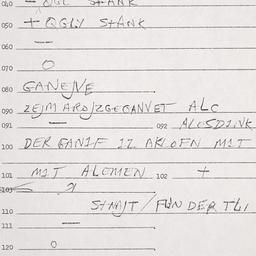 040 – OGL STANK
050 + OGLY STANK
060 —
070 O
080 GANEJVE
090 ZEJM AROJZGEGANVET ALC
091 — 092 ALCSDINK
100 DER GANIF IZ AKLOFN MIT
101 MIT ALEMEN 102 +
103
STAAJT / FUN DER TLI
110
111 —
120 O